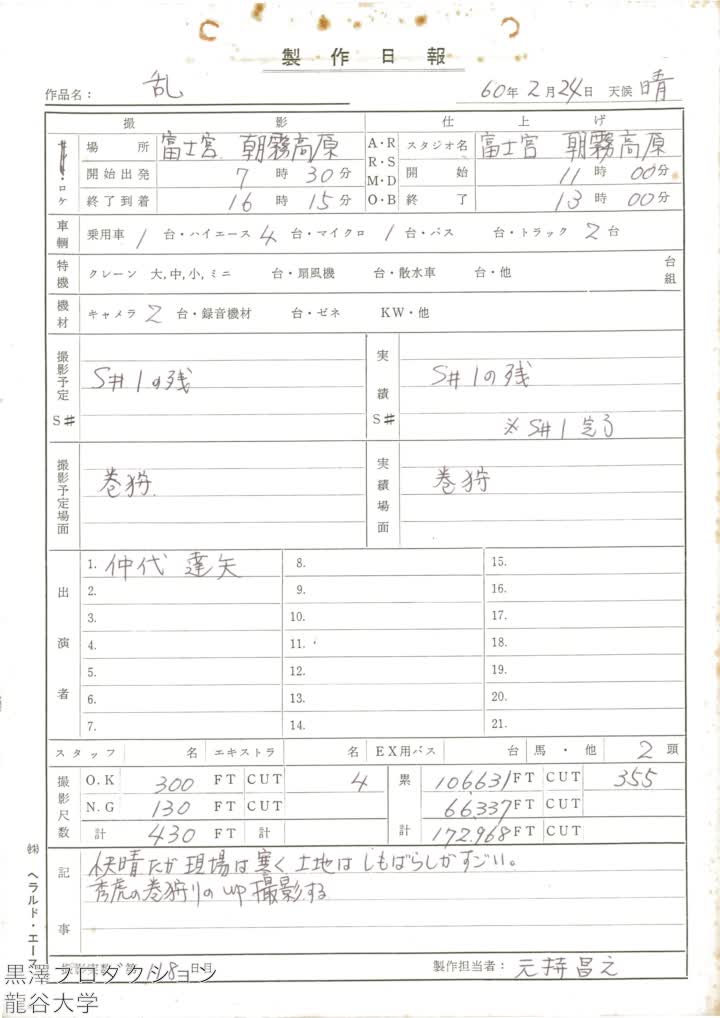 製作日報
作品名： 乱 60年2月24日 天候 晴
撮影 仕上げ
・ロケ 場所 富士宮 朝霧高原 A・R R・S M・D O・B スタジオ名 富士宮 朝霧高原
開始出発 7時30分 開始 11時00分
終了到着 16時15分 終了 13時00分
車輌 乗用車 1 台・ハイエース 4 台・マイクロ 1 台・バス 台・トラック 2 台
特機 クレーン 大,中,小,ミニ 台・扇風機 台・散水車 台・他 台 組
機材 キャメラ 2 台・録音機材 台・ゼネ KW・他
撮影予定 S# S#1の残 実績 S# S#1の残
※S#1完了
撮影予定場面 巻狩 実績場面 巻狩
出演者
1. 仲代達矢 8. 15.
2. 9. 16.
3. 10. 17.
4. 11. 18.
5. 12. 19.
6. 13. 20.
7. 14. 21.
スタッフ 名 エキストラ 名 EX用バス 台 馬・他 2 頭
撮影尺数 O.K 300 FT CUT 4 累計 106,631 FT CUT 355
N.G 130 FT CUT 66,337 FT CUT
計 430 FT 計 172,968 FT CUT
記事 快晴だが現場は寒く土地はしもばらしがすごい。
秀虎の巻狩りのup撮影する
撮影実数 第118日目 製作担当者： 元持昌之
㈱ ヘラルド・エース
黒澤プロダクション
龍谷大学